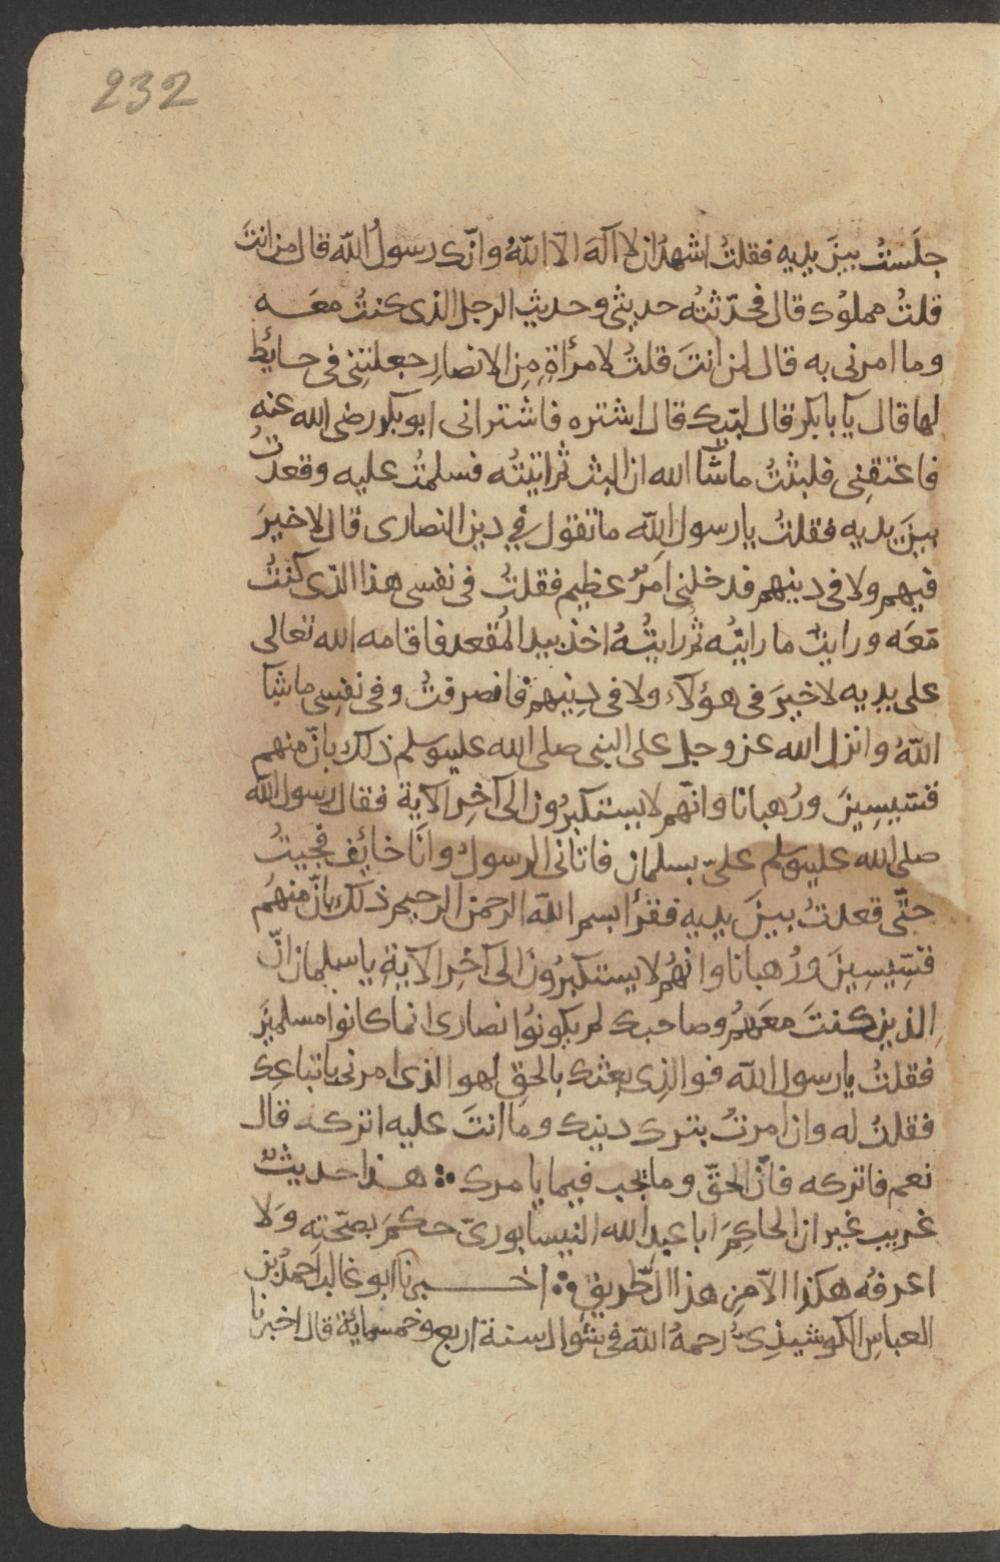 232
جلَستُ بينَ يديه فقلتُ اشهدُ ان لا اله الا اللهُ وانّك رسولُ الله قال من انتَ
قلتُ مملوك قال فحدّثتُه حديثى وحديث الرجل الذى كنتُ معَه
وما امرنى به قال لمن انتَ قلتُ لامرأةٍ مِن الانصارِ جعلتنِى فى حايطٍ
لها قال يا بابكر قال لبّيك قال اشتره فاشترانى ابو بكر رضى الله عنه
فاعتقنِى فلبثتُ ما شآ الله ان البث ثم اتيتُه فسلمتُ عليه وقعدتُ
بينَ يديه فقلتُ يا رسول الله ما تقول فى دين النصارى قال لا خيرَ
فيهم ولا فى دينهم فدخلنى امرٌ عظيم فقلتُ فى نفسى هذا الذى كنتُ
مَعَه ورايتُ ما رايتُه ثم رايتُهُ اخذ بيد المُقعد فاقامه الله تعالى
على يديه لا خيرَ فى هؤلآء ولا فى دِينِهم فانصرفتُ وفى نفسِى ما شآ
اللهُ وانزل الله عز وجل على النبى صلى الله عليه وسلم ذلك بانّ منهم
قسّيسِينَ ورُهبانا وانّهم لا يستكبرُون الى آخِرِ الآية فقال رسول الله
صلى الله عليه وسلم علىّ بسلمان فاتانى الرسولُ وانَا خايف فجيتُ
حتّى قعدتُ بينَ يديه فقرأ بسم الله الرحمن الرحيم ذلك بانّ منهُم
قسّيسِينَ ورُهبانا وانّهُم لا يستكبرُونَ الى آخِرِ الآيةِ يا سلمان انّ
الذين كنتَ معَهُم وصاحبك لم يكونُوا نصارى انما كانوا مسلمينَ
فقلتُ يا رسول الله فوالذِى بعثك بالحقِ لهو الذى امرنى باتباعك
فقلتُ له وان امرنى بترك دينك وما انتَ عليه اتركه قال
نعم فاتركه فانّ الحقّ وما يجب فيما يامرك هذا حديثٌ
غريب غير ان الحاكِمَ ابا عبد الله النيسابورىّ حكمَ بصحّتِه وَلا
اعرفُه هكذا الاّ مِن هذا الطّريقِ اخبرنا ابو غالب احمدُ بن
العباسِ الكوشيذِىُّ رحمهُ الله فى شوال سنة اربع وخمسماية قال اخبرنا